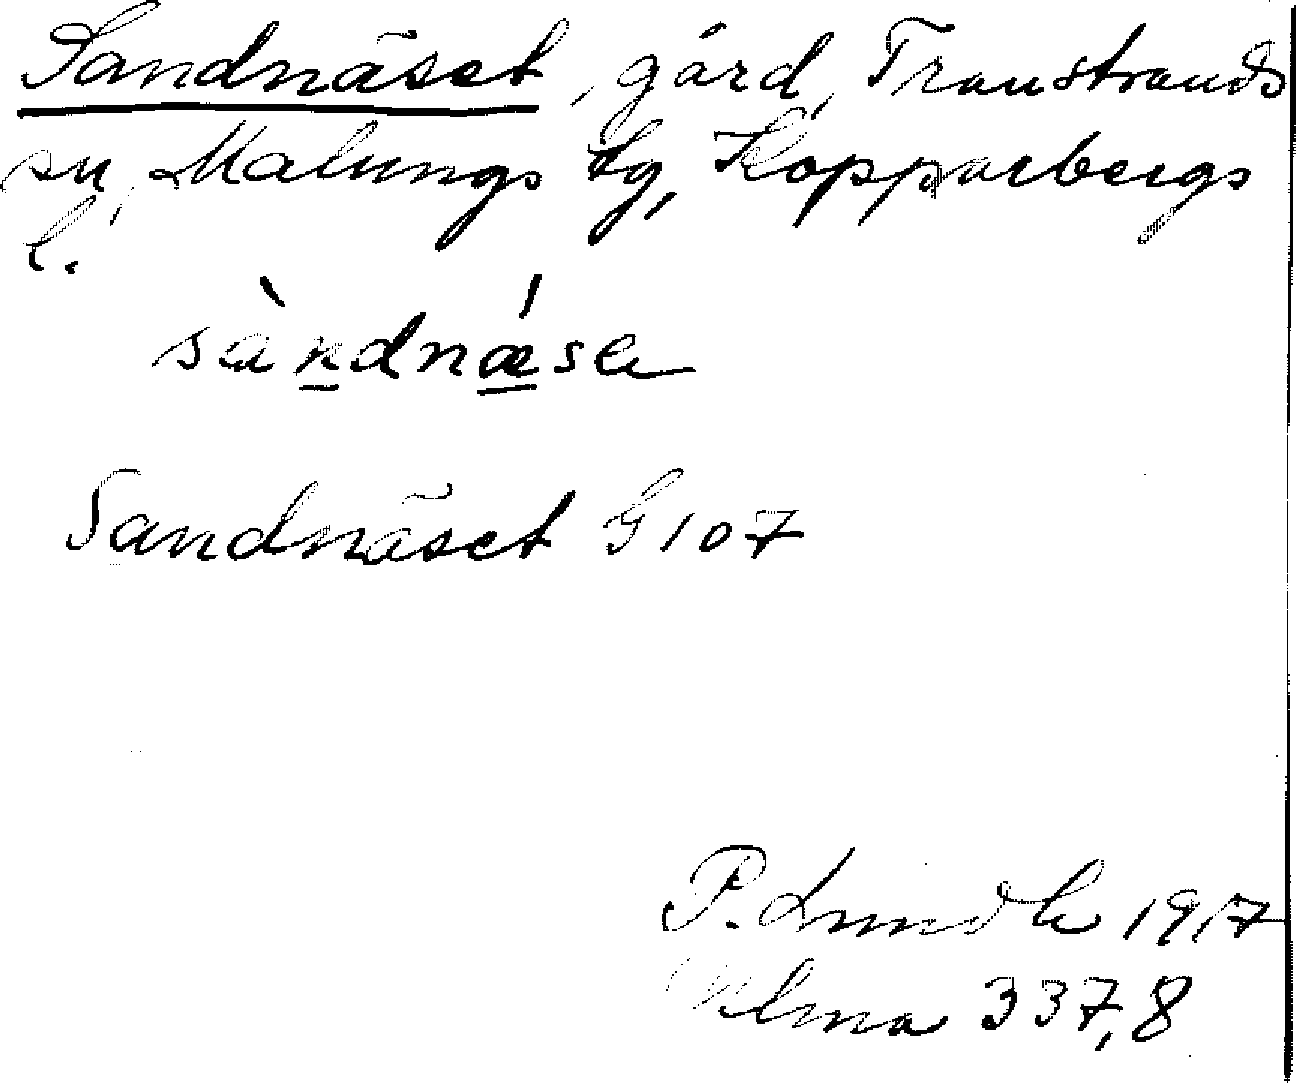 Sandnäset, gård, Transtrands
sn, Malungs tg, Kopparbergs
l.
sàndnǽse
Sandnäset G 107
P. Lindh 1917
Ulma 337,8